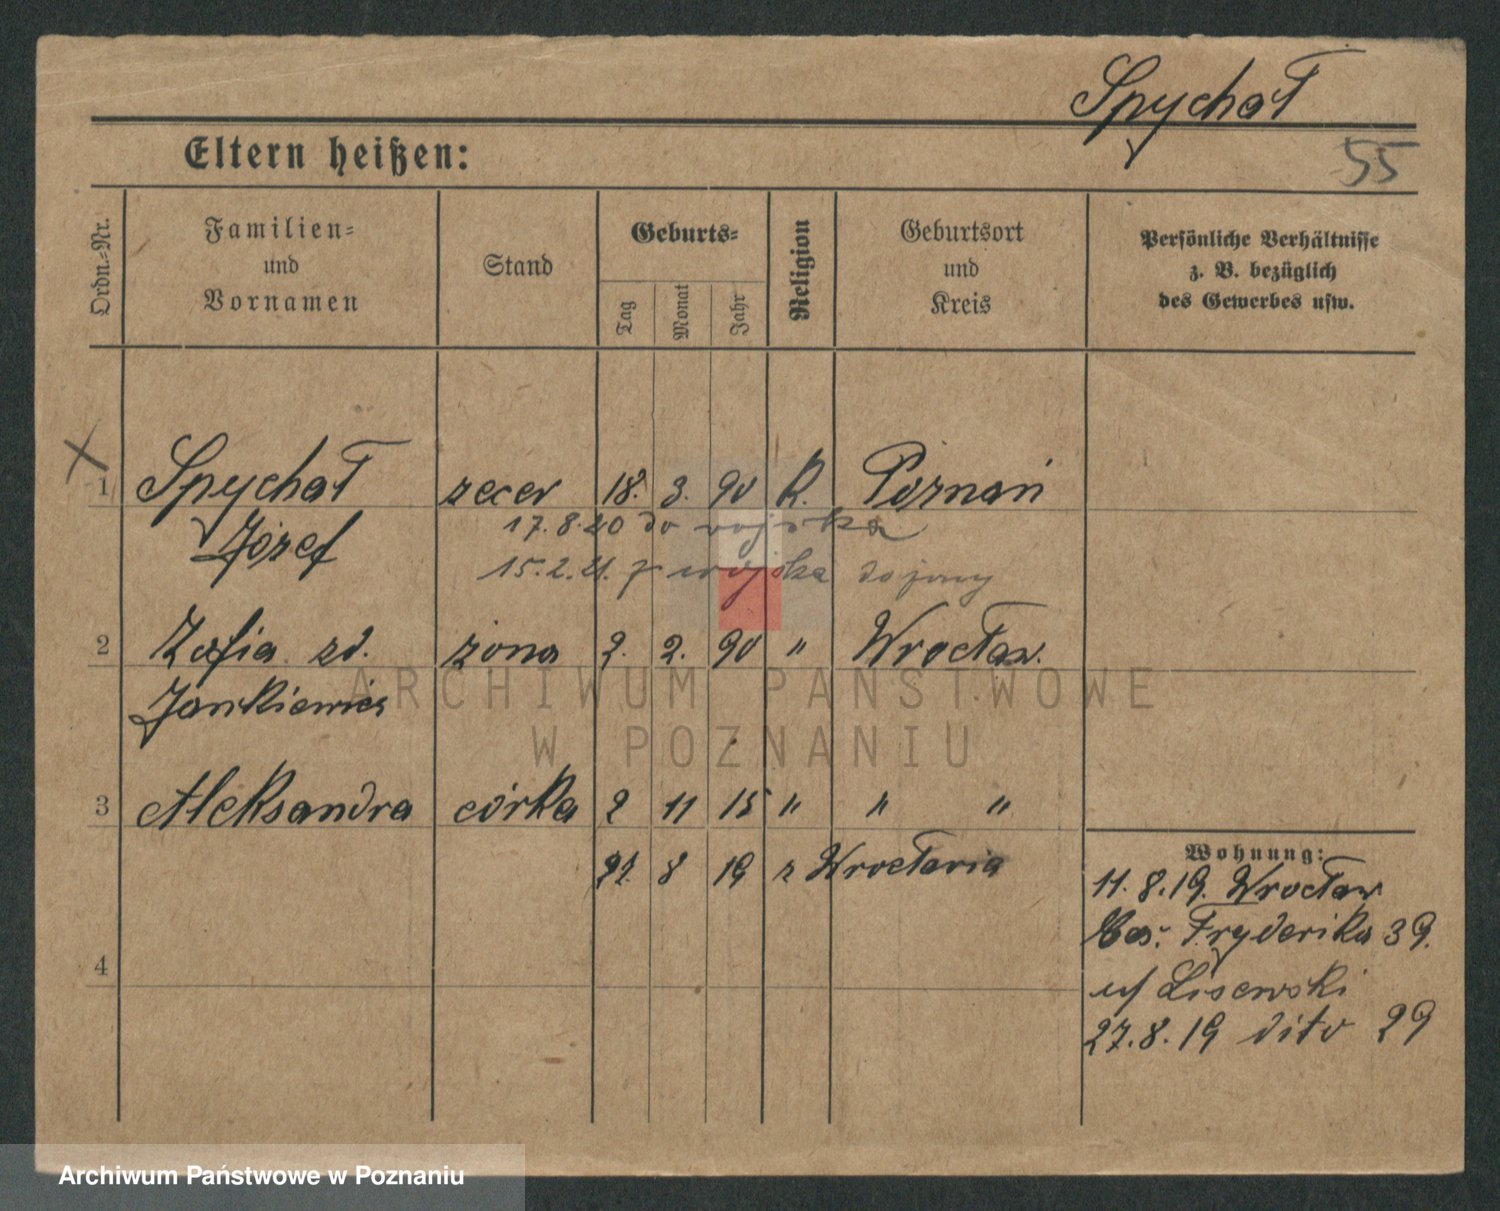 Spychał
55
Eltern heißen:
Ordn.-Nr.
Familien= und Vornamen
Stand
Geburts=
Tag
Monat
Jahr
Religion
Geburtsort und Kreis
Persönliche Verhältnisse
z. B. bezüglich
des Gewerbes usw.
1 Spychał zecer 18. 3. 90 R. Poznań
Józef 17.8.20 do wojska
15.2.21. z wojska do
2 Zofia zd. żona 2. 2. 90 " Wrocław.
Jankiewicz
3 Aleksandra córka 2 11 15 " " "
21. 8 19 z Wrocławia
4
Wohnung:
11.8.19. Wrocław
Fryderika 39.
Lisewski
27.8.19 dito 29
ARCHIWUM PAŃSTWOWE
W POZNANIU
Archiwum Państwowe w Poznaniu